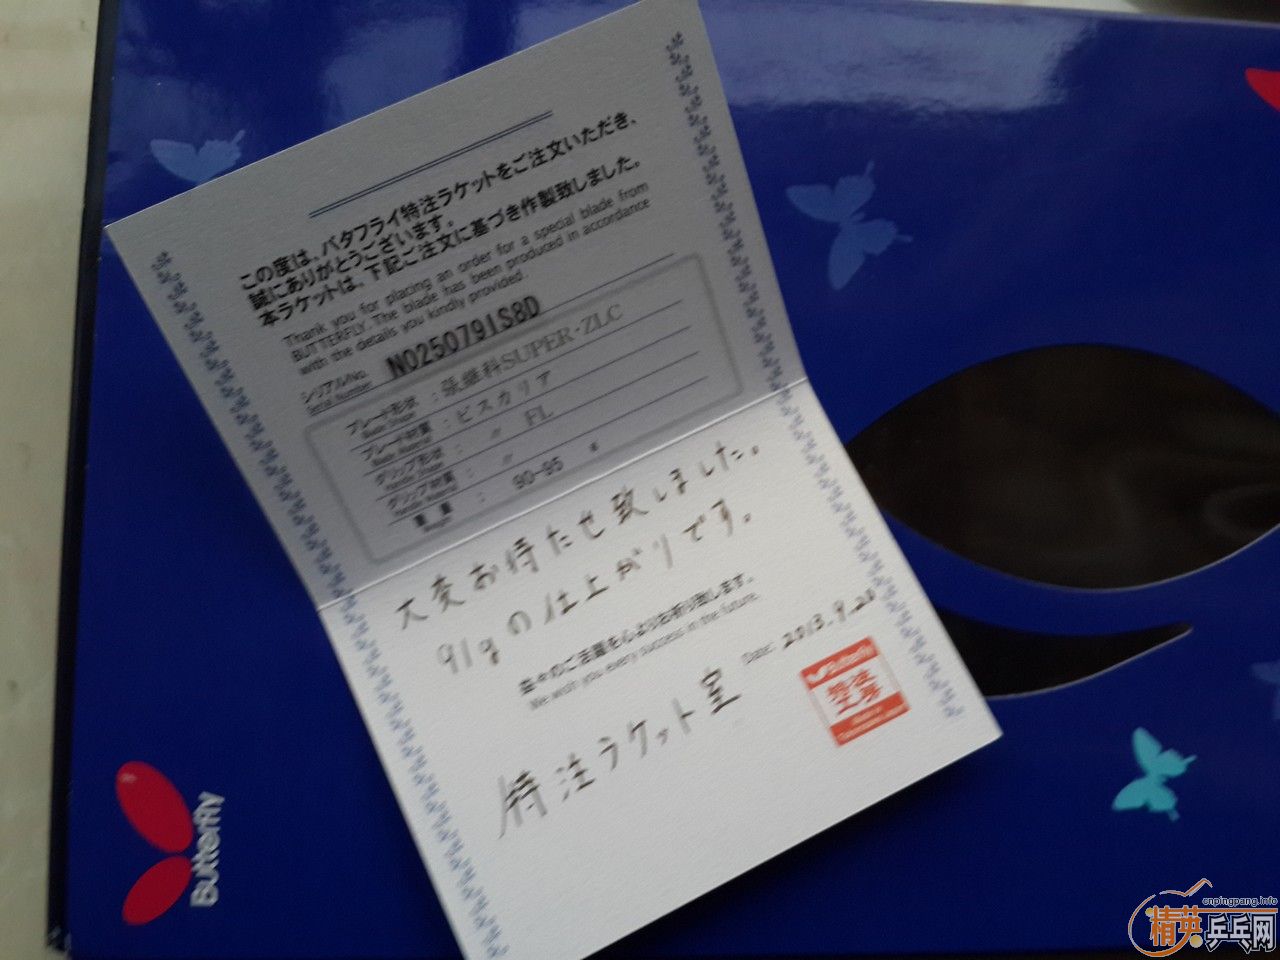 この度は、バタフライ特注ラケットをご注文いただき、
誠にありがとうございます。
本ラケットは、下記ご注文に基づき作製致しました。
Thank you for placing an order for a special blade from
BUTTERFLY. The blade has been produced in accordance
with the details you kindly provided.
シリアルNo. N0250791S8D
Serial Number
ブレード形状 : 張継科SUPER・ZLC
Blade Shape
ブレード材質 : ビスカリア
Blade Material
グリップ形状 : 〃 FL
Handle Shape
グリップ材質 : 〃
Handle Material
重量 : 90-95 g
Weight
大変お待たせ致しました。
91gの仕上がりです。
益々のご活躍を心よりお祈り致します。
We wish you every success in the future.
Date: 2013.9.20
特注ラケット室
Butterfly
Butterfly
cnpingpang.info
精英乒乓网